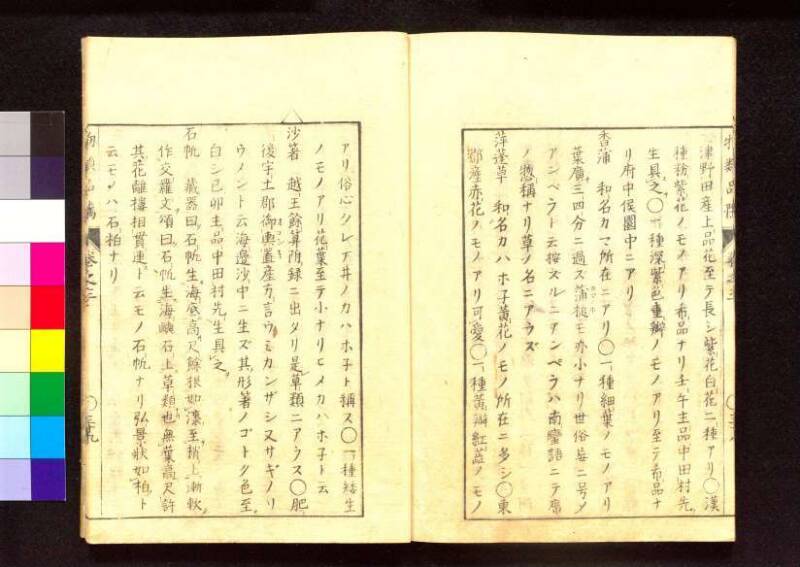 津野田産上品花至テ長シ紫花白花二種アリ〇漢
種粉紫花ノモノアリ希品ナリ壬午主品中田村先
生具之〇一種深紫色重瓣ノモノアリ至テ希品ナ
リ府中侯園中ニアリ
香蒲 和名カマ所在ニアリ〇一種細葉ノモノアリ
葉廣三四分ニ過ス蒲槌モ亦小ナリ世俗
アンペラト云按スルニアンペラハ南蠻語ニテ席
ノ惣稱ナリ草ノ名ニアラズ
萍蓬草 和名カハホ子黄花ノモノ所在ニ多シ〇東
都産赤花ノモノアリ可愛〇一種黄瓣紅蕋ノモノ
アリ俗心クレ井ノカハホ子ト稱ス〇一種矮生
ノモノアリ花葉至テ小ナリヒメカハホ子ト云
沙箸 越王餘算附録ニ出タリ是草類ニアラス〇肥
後宇土郡御輿置産方言ウミカンザシ又サギノリ
ウメント云海邊沙中ニ生ズ其形箸ノゴトク色至
白シ己卯主品中田村先生具之
石帆 藏器曰石帆生海底高尺餘根如漆至梢上漸軟
作交羅文頌曰石帆生海嶼石上草類也無葉高尺許
其花離樓相貫連ト云モノ石帆ナリ弘景状如柏ト
云モノハ石柏ナリ
物類品隲 巻之三